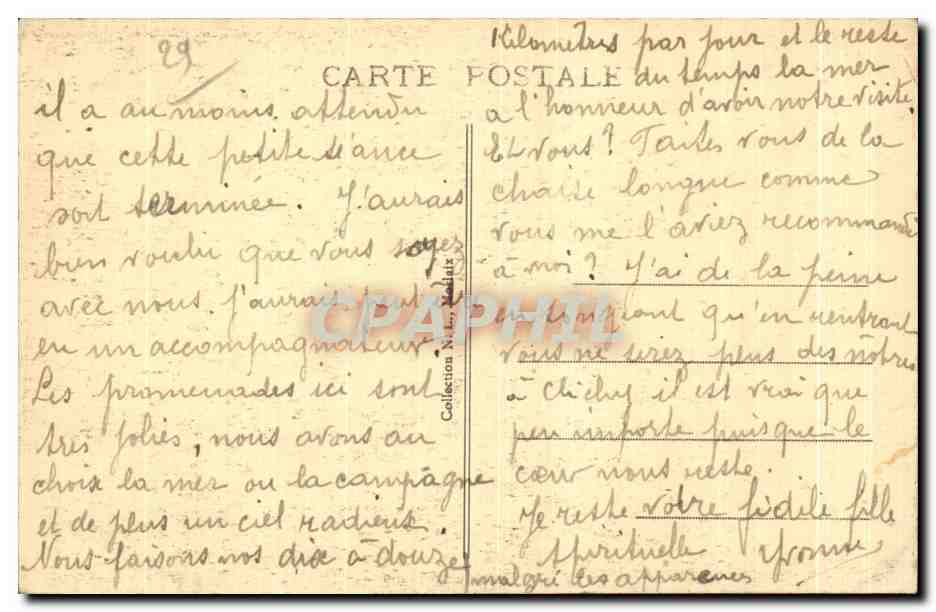 29
CARTE POSTALE
il a au moins attendu
que cette petite séance
soit terminée. J'aurais
bien voulu que vous soyez
avec nous j'aurais peut être
eu un accompagnateur.
Les promenades ici sont
très jolies, nous avons au
choix la mer ou la campagne
et de plus un ciel radieux.
Nous faisons nos dix à douze
Kilomètres par jour et le reste
du temps la mer
a l'honneur d'avoir notre visite.
Et vous? Faites vous de la
chaise longue comme
vous me l'aviez recommandé
à moi? J'ai de la peine
en songeant qu'en rentrant
vous ne serez plus des nôtres
à Clichy il est vrai que
peu importe puisque le
cœur nous reste.
Je reste votre fidèle fille
spirituelle Yvonne
malgré les apparences
Collection N. L., Morlaix
CPAPHIL